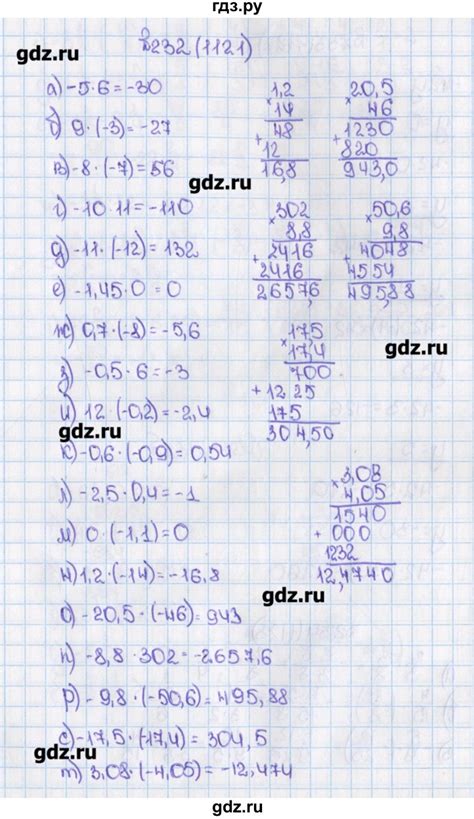 гдз.ру
№232 (1121)
gdz.ru
а) -5·6 = -30
б) 9·(-3) = -27
в) -8·(-7) = 56
gdz.ru
г) -10·11 = -110
д) -11·(-12) = 132
е) -1,45·0 = 0
ж) 0,7·(-8) = -5,6
з) -0,5·6 = -3
и) 12·(-0,2) = -2,4
gdz.ru
к) -0,6·(-0,9) = 0,54
л) -2,5·0,4 = -1
м) 0·(-1,1) = 0
н) 1,2·(-14) = -16,8
о) -20,5·(-46) = 943
п) -8,8·302 = -2657,6
р) -9,8·(-50,6) = 495,88
с) -17,5·(-17,4) = 304,5
gdz.ru
т) 3,08·(-4,05) = -12,474
1,2
× 14
48
+ 12
16,8
20,5
× 46
1230
+ 820
943,0
gdz.ru
302
× 8,8
2416
+ 2416
2657,6
50,6
× 9,8
4048
+ 4554
495,88
17,5
× 17,4
700
+ 1225
175
304,50
gdz.ru
3,08
× 4,05
1540
+ 000
1232
12,4740
gdz.ru
gdz.ru